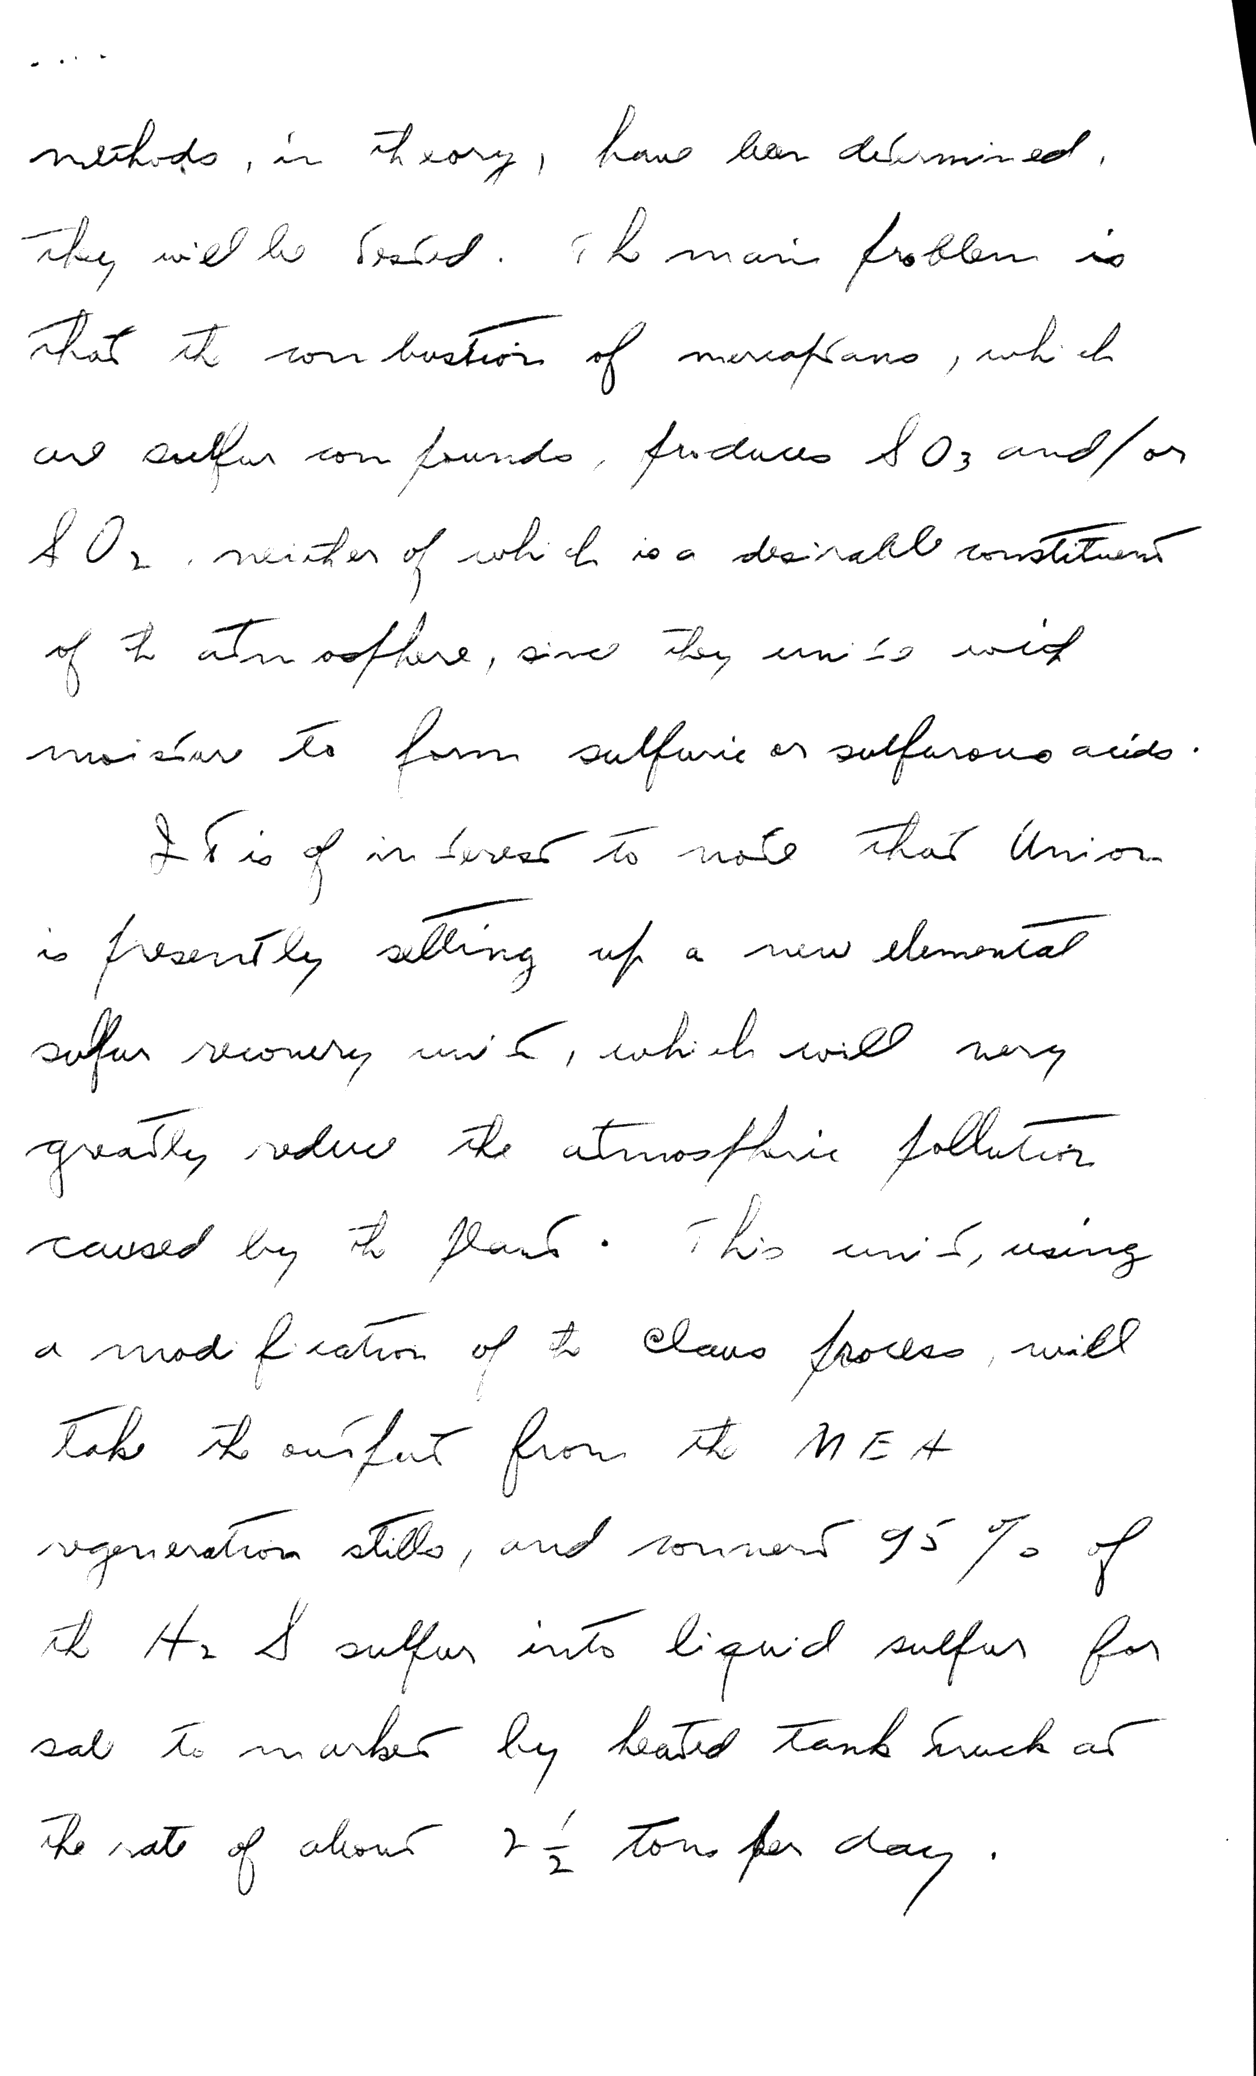 methods, in theory, have been determined,
they will be tested. The main problem is
that the combustion of mercaptans, which
are sulfur compounds, produces SO3 and/or
SO2, neither of which is a desirable constituent
of the atmosphere, since they unite with
moisture to form sulfuric or sulfurous acids.
It is of interest to note that Union
is presently setting up a new elemental
sulfur recovery unit, which will very
greatly reduce the atmospheric pollution
caused by the plant. This unit, using
a modification of the Claus process, will
take the output from the MEA
regeneration stills, and convert 95% of
the H2S sulfur into liquid sulfur for
sale to market by heated tank truck at
the rate of about 2 1/2 tons per day.